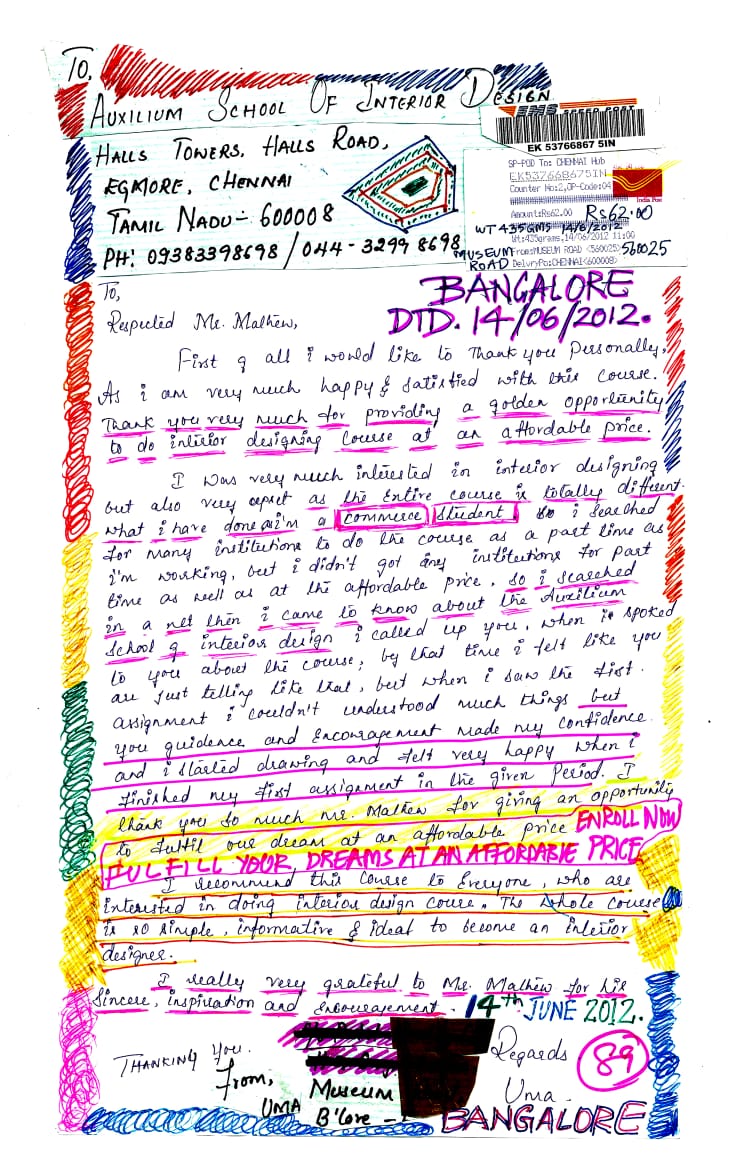 To,
AUXILIUM SCHOOL OF INTERIOR DESIGN
HALLS TOWERS, HALLS ROAD,
EGMORE, CHENNAI
TAMIL NADU - 600008
PH: 09383398698 / 044-3299 8698
EMS SPEED POST
EK 53766867 5IN
SP-POD To: CHENNAI Hub
EK537668675IN
Counter No:2,OP-Code:04
India Post
Amount:Rs62.00 Rs62.00
WT 435GMS 14/6/2012
Wt:435grams,14/06/2012 11:00
MUSEUM From:MUSEUM ROAD <560025> 560025
ROAD DelvryPo:CHENNAI<600008>
To,
BANGALORE
DTD. 14/06/2012.
Respected Mr. Mathew,
First of all i would like to Thank you Personally,
As i am very much happy & satisfied with this course.
Thank you very much for providing a golden opportunity
to do interior designing Course at an affordable price.
I was very much interested in interior designing
but also very upset as the Entire course is totally different
what i have done as i'm a commerce student so i searched
for many institutions to do the course as a part time as
i'm working, but i didn't got any institutions for part
time as well as at the affordable price. so i searched
in a net then i came to know about the Auxilium
School of interior design i called up you. when i spoked
to you about the course, by that time i felt like you
are just telling like that, but when i saw the first
assignment i couldn't understood much things but
you guidence and Encouragement made my confidence
and i started drawing and felt very happy when i
finished my first assignment in the given Period. I
thank you so much mr. Mathew for giving an opportunity
to fulfil our dream at an affordable price ENROLL NOW
FULFILL YOUR DREAMS AT AN AFFORDABLE PRICE
I recommend this Course to Everyone, who are
interested in doing interior design course. The whole course
is so simple, informative & ideal to become an interior
designer.
I really very grateful to Mr. Mathew for his
Sincere, inspiration and encouragement. 14th JUNE 2012.
THANKING YOU.
Regards
89
From,
UMA
Museum
B'lore -
Uma
BANGALORE